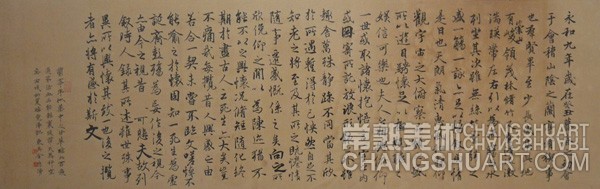 永和九年歲在癸丑暮春之初會
于會稽山陰之蘭亭脩禊事
也羣賢畢至少長咸集此地有
崇山
峻領茂林脩竹又有清流激
湍暎帶左右引以為流觴曲水
列坐其次雖無絲竹管弦之
盛一觴一詠亦足以暢敘幽情
是日也天朗氣清惠風和暢仰
觀宇宙之大俯察品類之盛
所以遊目騁懷足以極視聽之
娛信可樂也夫人之相與俯仰
一世或取諸懷抱悟言一室之內
或因寄所託放浪形骸之外雖
趣舍萬殊靜躁不同當其欣
於所遇蹔得於己怏然自足不
知老之將至及其所之既惓情
隨事遷感慨係之矣向之所
欣俛仰之閒以為陳迹猶不
能不以之興懷況脩短隨化終
期於盡古人云死生亦大矣豈
不痛哉每攬昔人興感之由
若合一契未嘗不臨文嗟悼不
能喻之於懷固知一死生為虛
誕齊彭殤為妄作後之視今
亦由今之視昔悲夫故列
敘時人錄其所述雖世殊事
異所以興懷其致一也後之攬
者亦將有感於斯文
CHANGSHUART.COM
CHANGSHUART.COM